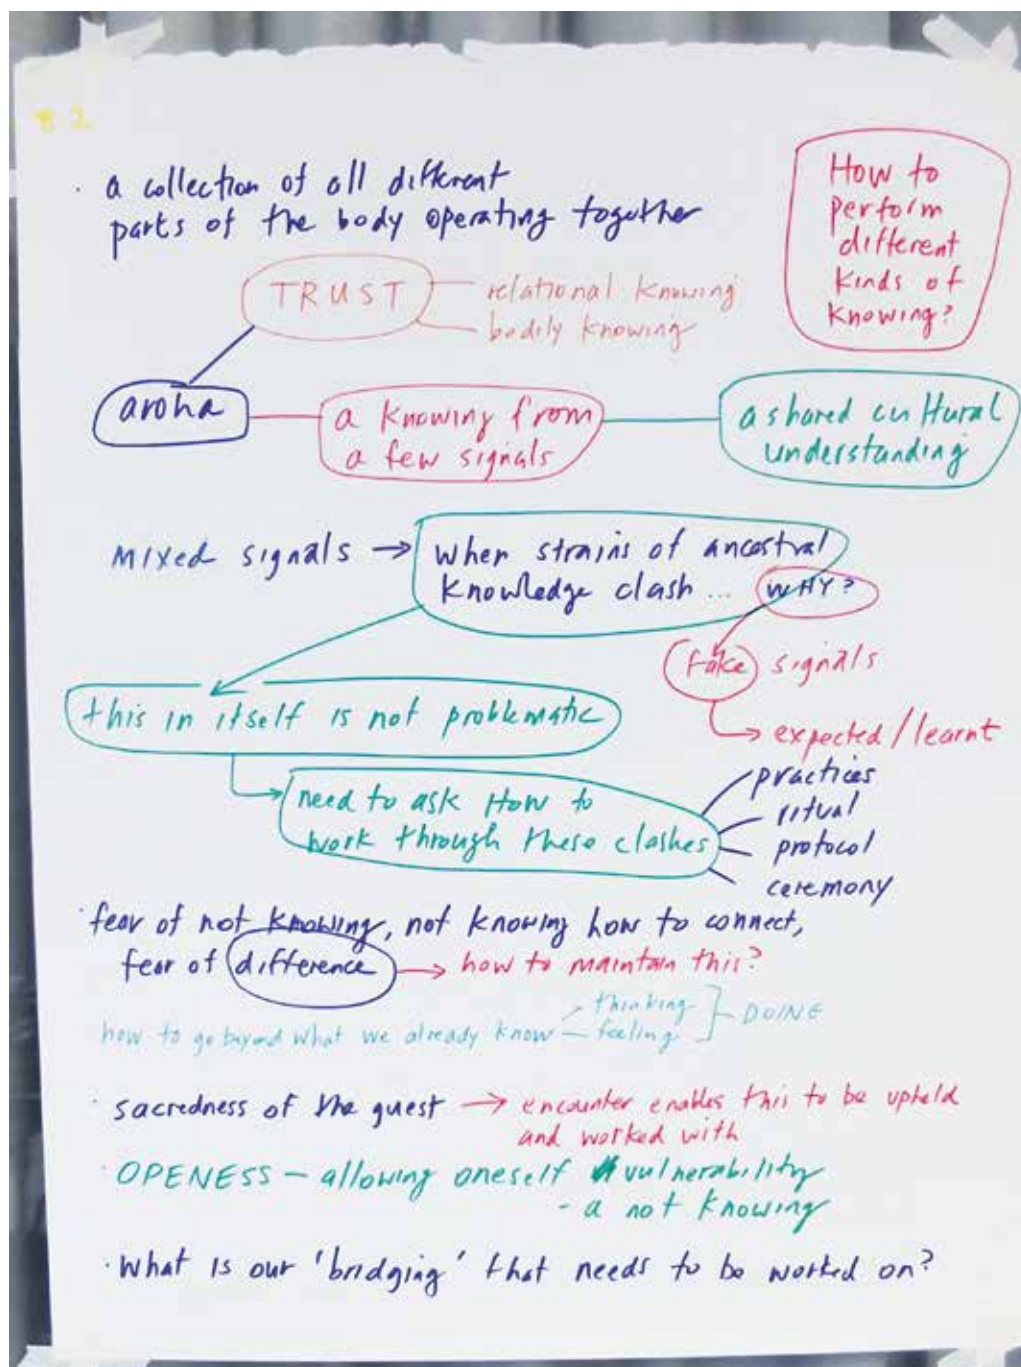 2
· a collection of all different
parts of the body operating together
How to
perform
different
kinds of
knowing?
TRUST
relational knowing
bodily knowing
aroha
a knowing from
a few signals
a shared cultural
understanding
mixed signals →
when strains of ancestral
knowledge clash ... WHY?
fake signals
→ expected/learnt
this in itself is not problematic
→ need to ask How to
work through these clashes
practices
ritual
protocol
ceremony
· fear of not knowing, not knowing how to connect,
fear of difference → how to maintain this?
how to go beyond what we already know
thinking
feeling
DOING
· sacredness of the guest → encounter enables this to be upheld
and worked with
· OPENESS – allowing oneself vulnerability
- a not knowing
· What is our 'bridging' that needs to be worked on?